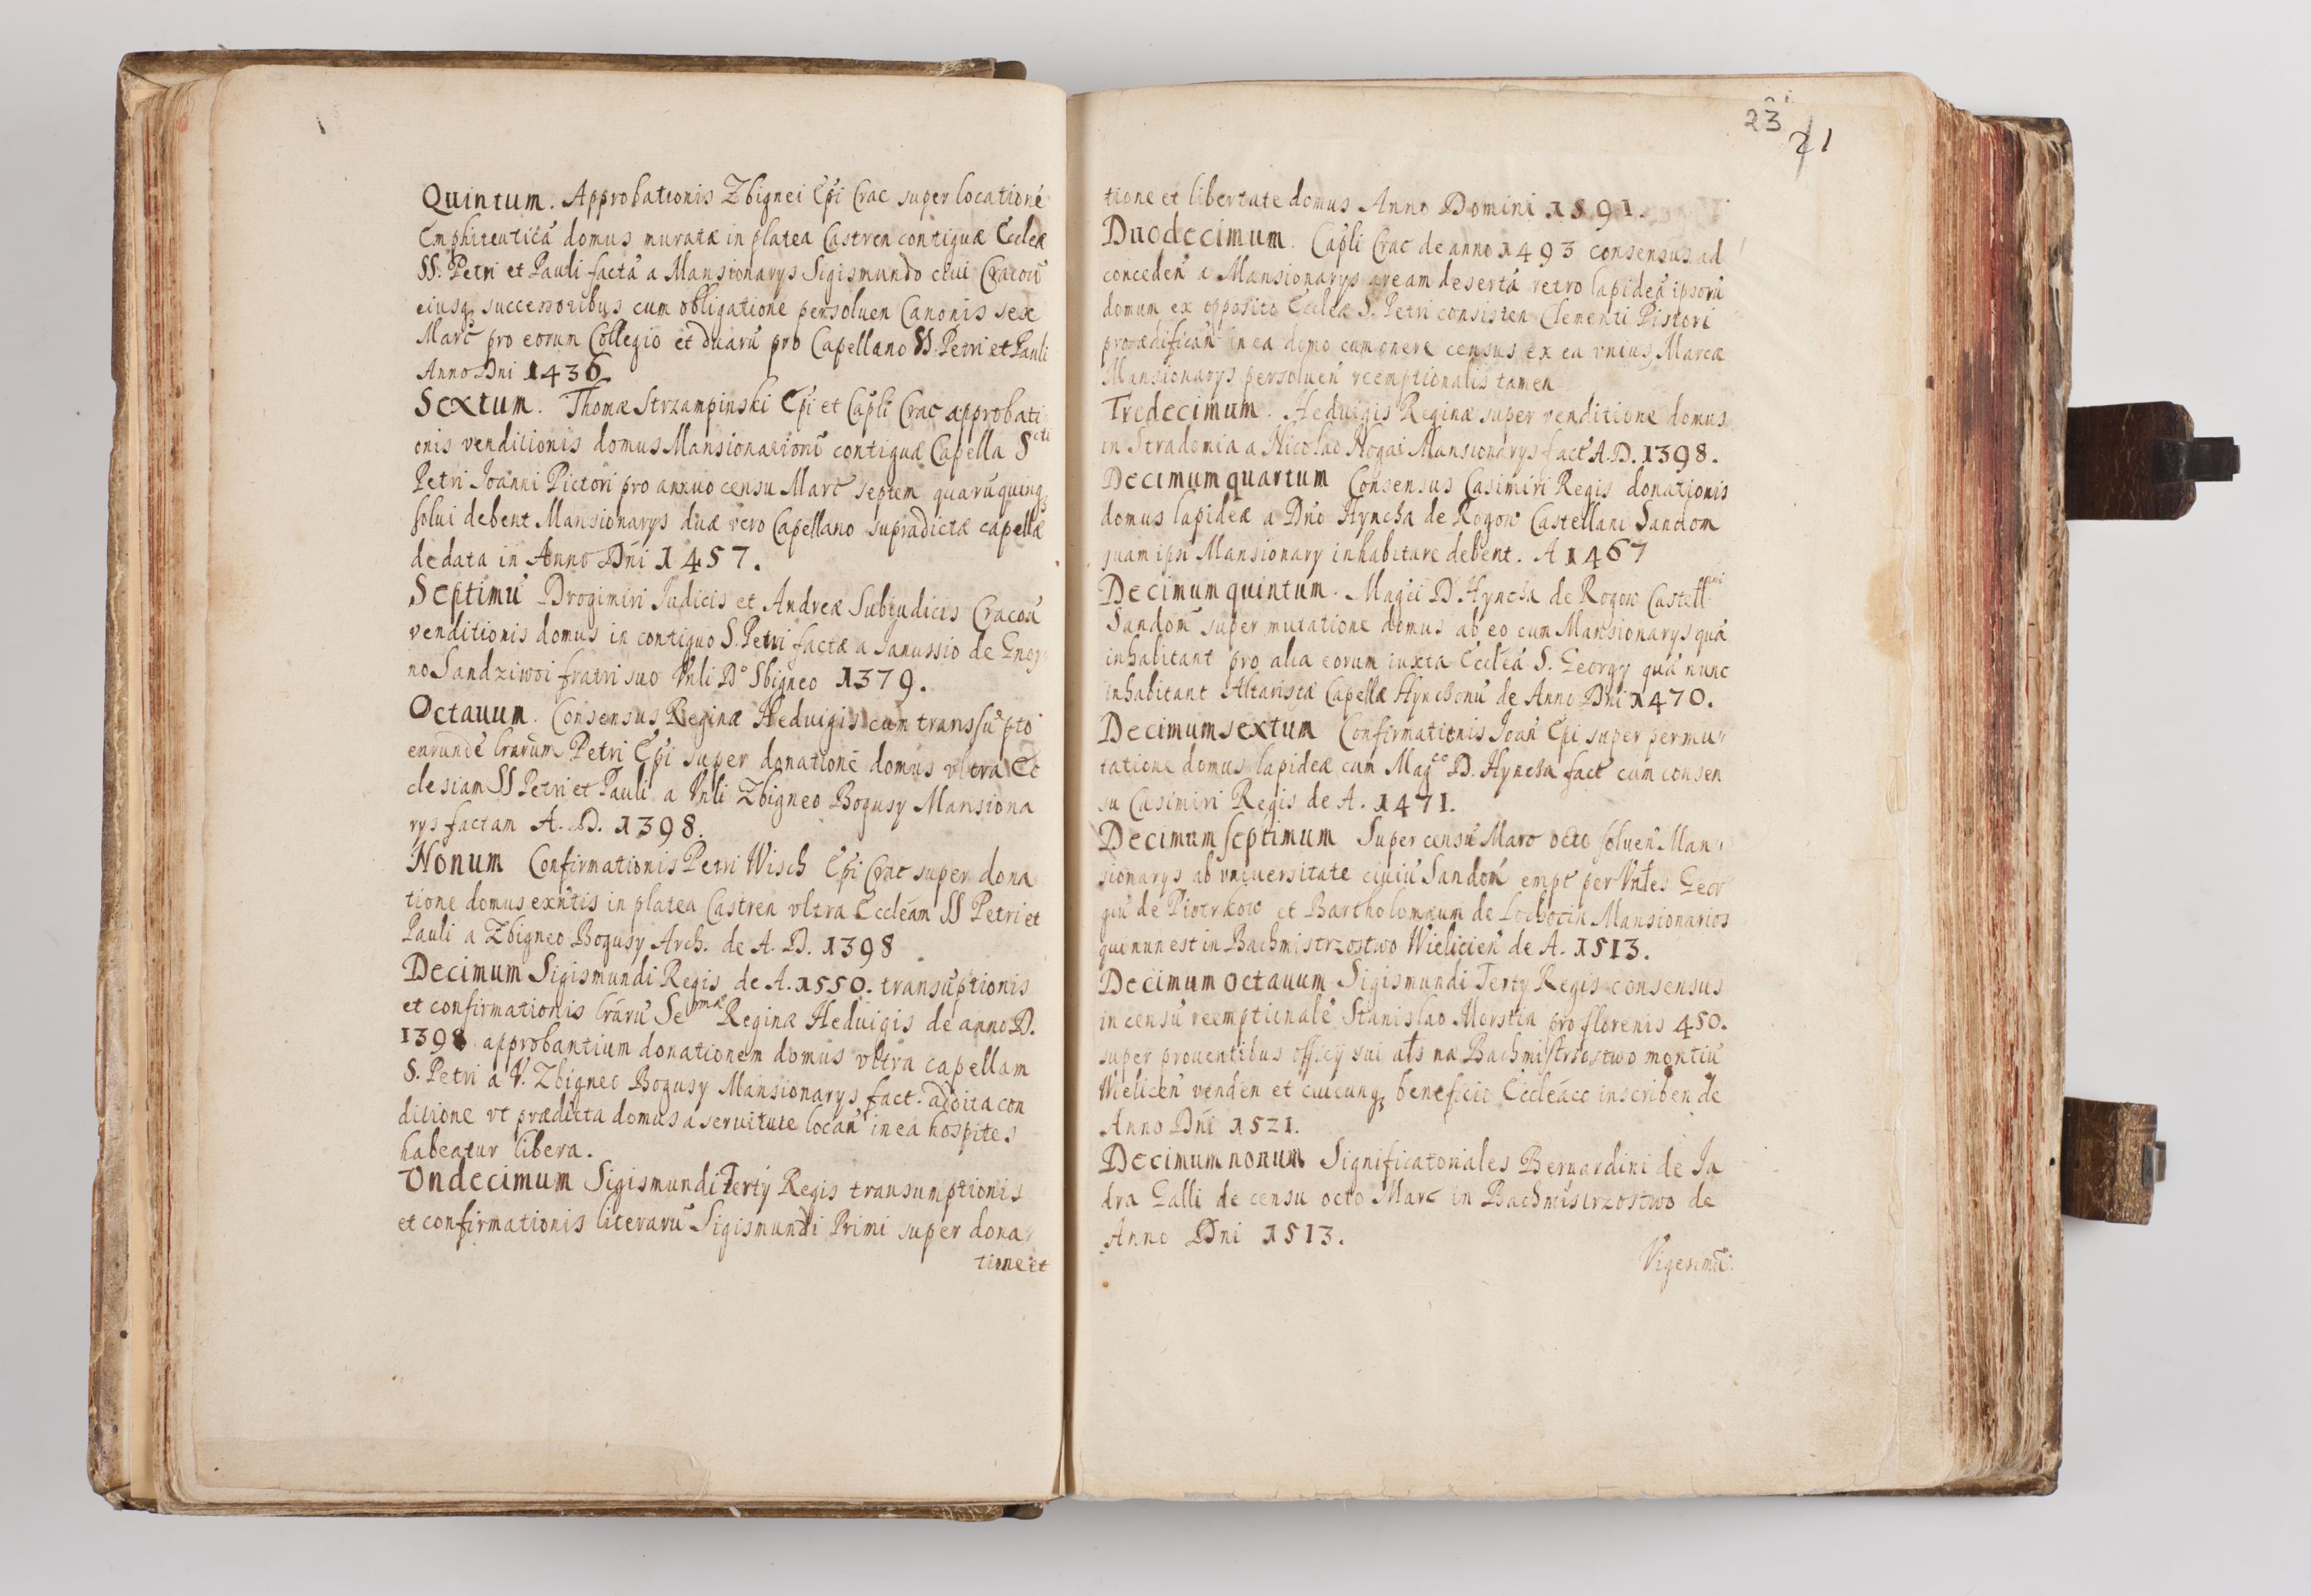 Quintum. Approbationis Zbignei Ep̃i Crac super locationẽ
Emphiteuticã domus muratæ in platea Castren contiguæ Eccleæ
SS. Petri et Pauli factã a Mansionarys Sigismundo ciui Cracoũ
eiusq3 successoribus cum obligatione persoluen Canonis sex
Marc̃ pro eorum Collegio et duarũ pro Capellano SS. Petri et Pauli
Anno Dni 1436
Sextum. Thomæ Strzampinski Ep̃i et Capli Crac approbati
onis venditionis domus Mansionariorũ contiguæ Capella S^cti
Petri Ioanni Pictori pro annuo censu Marc̃ septem quarũ quinq3
solui debent Mansionarys duæ vero Capellano supradictæ capellæ
de data in Anno Dñi 1457.
Septimũ Drogimiri Iudicis et Andreæ Subiudicis Cracoũ
venditionis domus in contiguo S. Petri factæ a Ianussio de Gnoy
no Sandziwoi fratri suo Vnli D° Sbigneo 1379.
Octauum. Consensus Reginæ Heduigis cum transsũpto
earundẽ lrarum Petri Ep̃i super donationẽ domus vltra Ec
clesiam SS Petri et Pauli a Vnli Zbigneo Bogusy Mansiona
rys factam A. D. 1398.
Nonum Confirmationis Petri Wisch Ep̃i Crac super dona
tione domus exñtis in platea Castren vltra Eccleãm SS Petri et
Pauli a Zbigneo Bogusy Arch. de A. D. 1398
Decimum Sigismundi Regis de A. 1550. transũptionis
et confirmationis lrarũ Se^rmæ Reginæ Heduigis de anno D.
1398 approbantium donationem domus vltra capellam
S. Petri a V. Zbigneo Bogusy Mansionarys fact. addita con
ditione vt prædicta domus a seruitute locañ in ea hospites
habeatur libera.
Vndecimum Sigismundi Terty Regis transumptionis
et confirmationis literarũ Sigismundi Primi super dona
tione et
23
21
tione et libertate domus Anno Domini 1591.
Duodecimum. Capli Crac de anno 1493 consensus ad
concedeñ a Mansionarys aream desertã retro lapideã ipsorũ
domum ex opposito Eccleæ S. Petri consisten Clementi Pistori
proædificañ in ea domo cum onere census ex ea vnius Marcæ
Mansionarys persolueñ reemptionalis tamen
Tredecimum. Heduigis Reginæ super venditione domus
in Stradomia a Nicolao Nogai Mansionarys fact A. D. 1398.
Decimum quartum Consensus Casimiri Regis donationis
domus lapideæ a Dño Hyncza de Rogow Castellani Sandom
quam ipsi Mansionary inhabitare debent. A 1467
Decimum quintum. Magci D Hyncza de Rogow Castell^ani
Sandom̃ super mutatione domus ab eo cum Mansionarys quã
inhabitant pro alia eorum iuxta Eccleã S. Georgy quã nunc
inhabitant Altaristæ Capellæ Hynczonũ de Anno Dñi 1470.
Decimum sextum Confirmationis Ioañ Ep̃i super permu
tatione domus lapideæ cum Mag^co D. Hyncza fact cum consen
su Casimiri Regis de A. 1471.
Decimum septimum Super censũ Marc octo solueñ Man
sionarys ab vniuersitate ciuiũ Sandom̃ empt per Vñtes Geor
giũ de Piotrkow et Bartholomæum de Lochocin Mansionarios
qui nun est in Bachmistrzostwo Wielicieñ de A. 1513.
Decimum octauum Sigismundi Terty Regis consensus
in censũ reemptionalẽ Stanislao Morstin pro florenis 450.
super prouentibus officij sui als na Bachmistrzostwo montiũ
Wieliceñ venden et cuicunq3 beneficio Eccleãco inscriben de
Anno Dñi 1521.
Decimum nonum Significatoriales Bernardini de Ja
dra Galli de censu octo Marc in Bachmistrzostwo de
Anno Dñi 1513.
Vigesimũ.